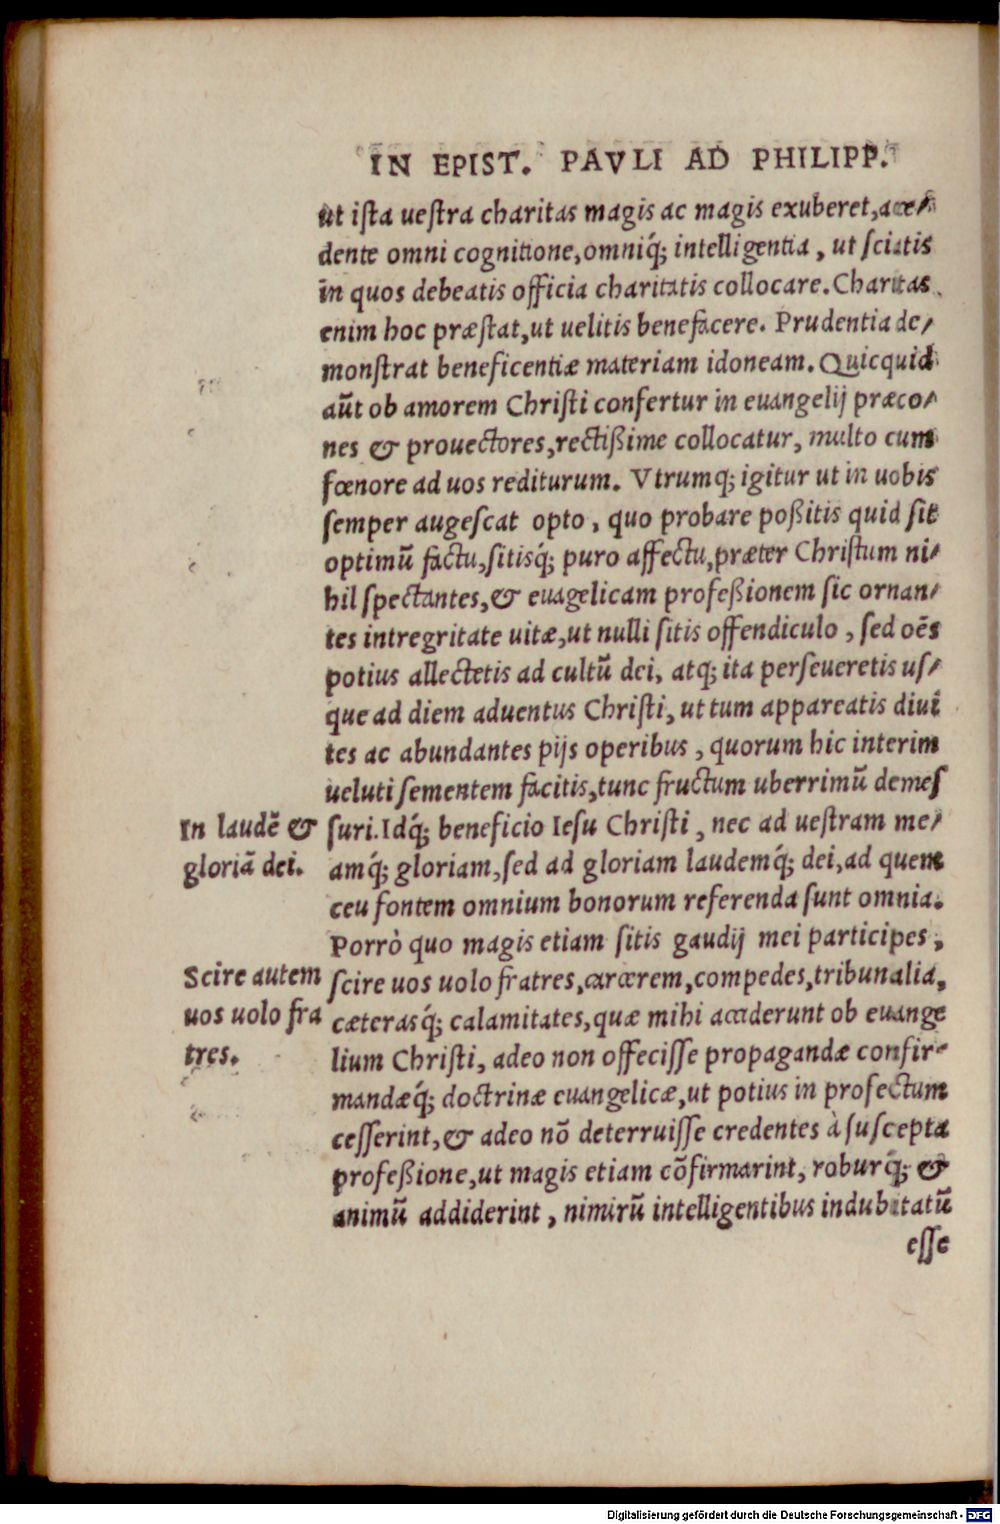 IN EPIST. PAVLI AD PHILIPP.
ut iſta ueſtra charitas magis ac magis exuberet, acce/
dente omni cognitione, omniq́; intelligentia, ut ſciatis
in quos debeatis officia charitatis collocare. Charitas
enim hoc præſtat, ut uelitis benefacere. Prudentia de/
monſtrat beneficentiæ materiam idoneam. Quicquid
aūt ob amorem Chriſti confertur in euangelij præco/
nes & prouectores, rectißime collocatur, multo cum
fœnore ad uos rediturum. Vtrumq; igitur ut in uobis
ſemper augeſcat opto, quo probare poßitis quid ſit
optimū factu, ſitisq́; puro affectu, præter Chriſtum ni/
hil ſpectantes, & euagelicam profeßionem ſic ornan/
tes intregritate uitæ, ut nulli ſitis offendiculo, ſed oēs
potius allectetis ad cultū dei, atq; ita perſeueretis uſ/
que ad diem aduentus Chriſti, ut tum appareatis diui
tes ac abundantes pijs operibus, quorum hic interim
ueluti ſementem facitis, tunc fructum uberrimū demeſ
In laudē &
gloriā dei.
ſuri. Idq́; beneficio Ieſu Chriſti, nec ad ueſtram me/
amq́; gloriam, ſed ad gloriam laudemq́; dei, ad quem
ceu fontem omnium bonorum referenda ſunt omnia.
Porrò quo magis etiam ſitis gaudij mei participes,
Scire autem
uos uolo fra
tres.
ſcire uos uolo fratres, carcerem, compedes, tribunalia,
cæterasq́; calamitates, quæ mihi acciderunt ob euange
lium Chriſti, adeo non offeciſſe propagandæ confir-
mandæq́; doctrinæ euangelicæ, ut potius in profectum
ceſſerint, & adeo nō deterruiſſe credentes à ſuſcepta
profeßione, ut magis etiam cōfirmarint, roburq́; &
animū addiderint, nimirū intelligentibus indubitatū
eſſe
Digitalisierung gefördert durch die Deutsche Forschungsgemeinschaft - DFG